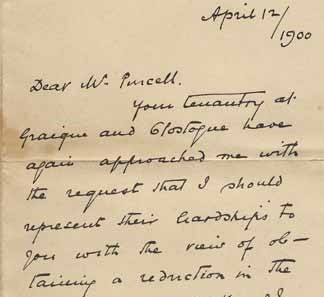 April 12/
1900
Dear Mr Purcell.
Your tenantry at
Graigue and Clostogue have
again approached me with
the request that I should
represent their hardships to
you with the view of ob-
taining a reduction in the